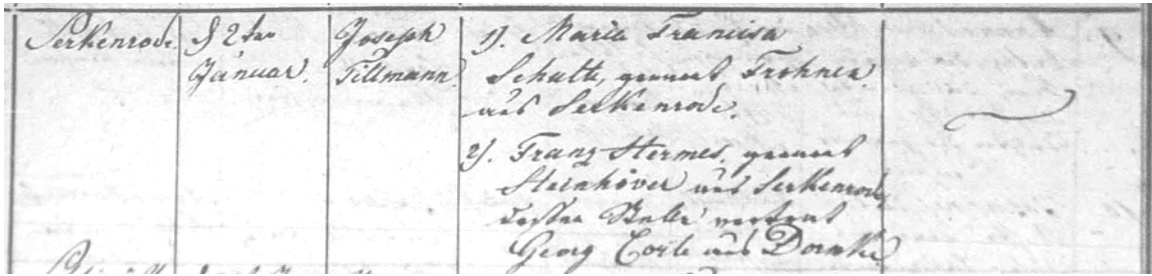 Serkenrode.
d 2ten
Januar.
Joseph
Tillmann
1). Maria Francisca
Schulte, genannt Frohnen
aus Serkenrode.
2). Franz Hermes, genannt
Steinhöver aus Serkenrode,
dessen Stelle vertrat
Georg aus